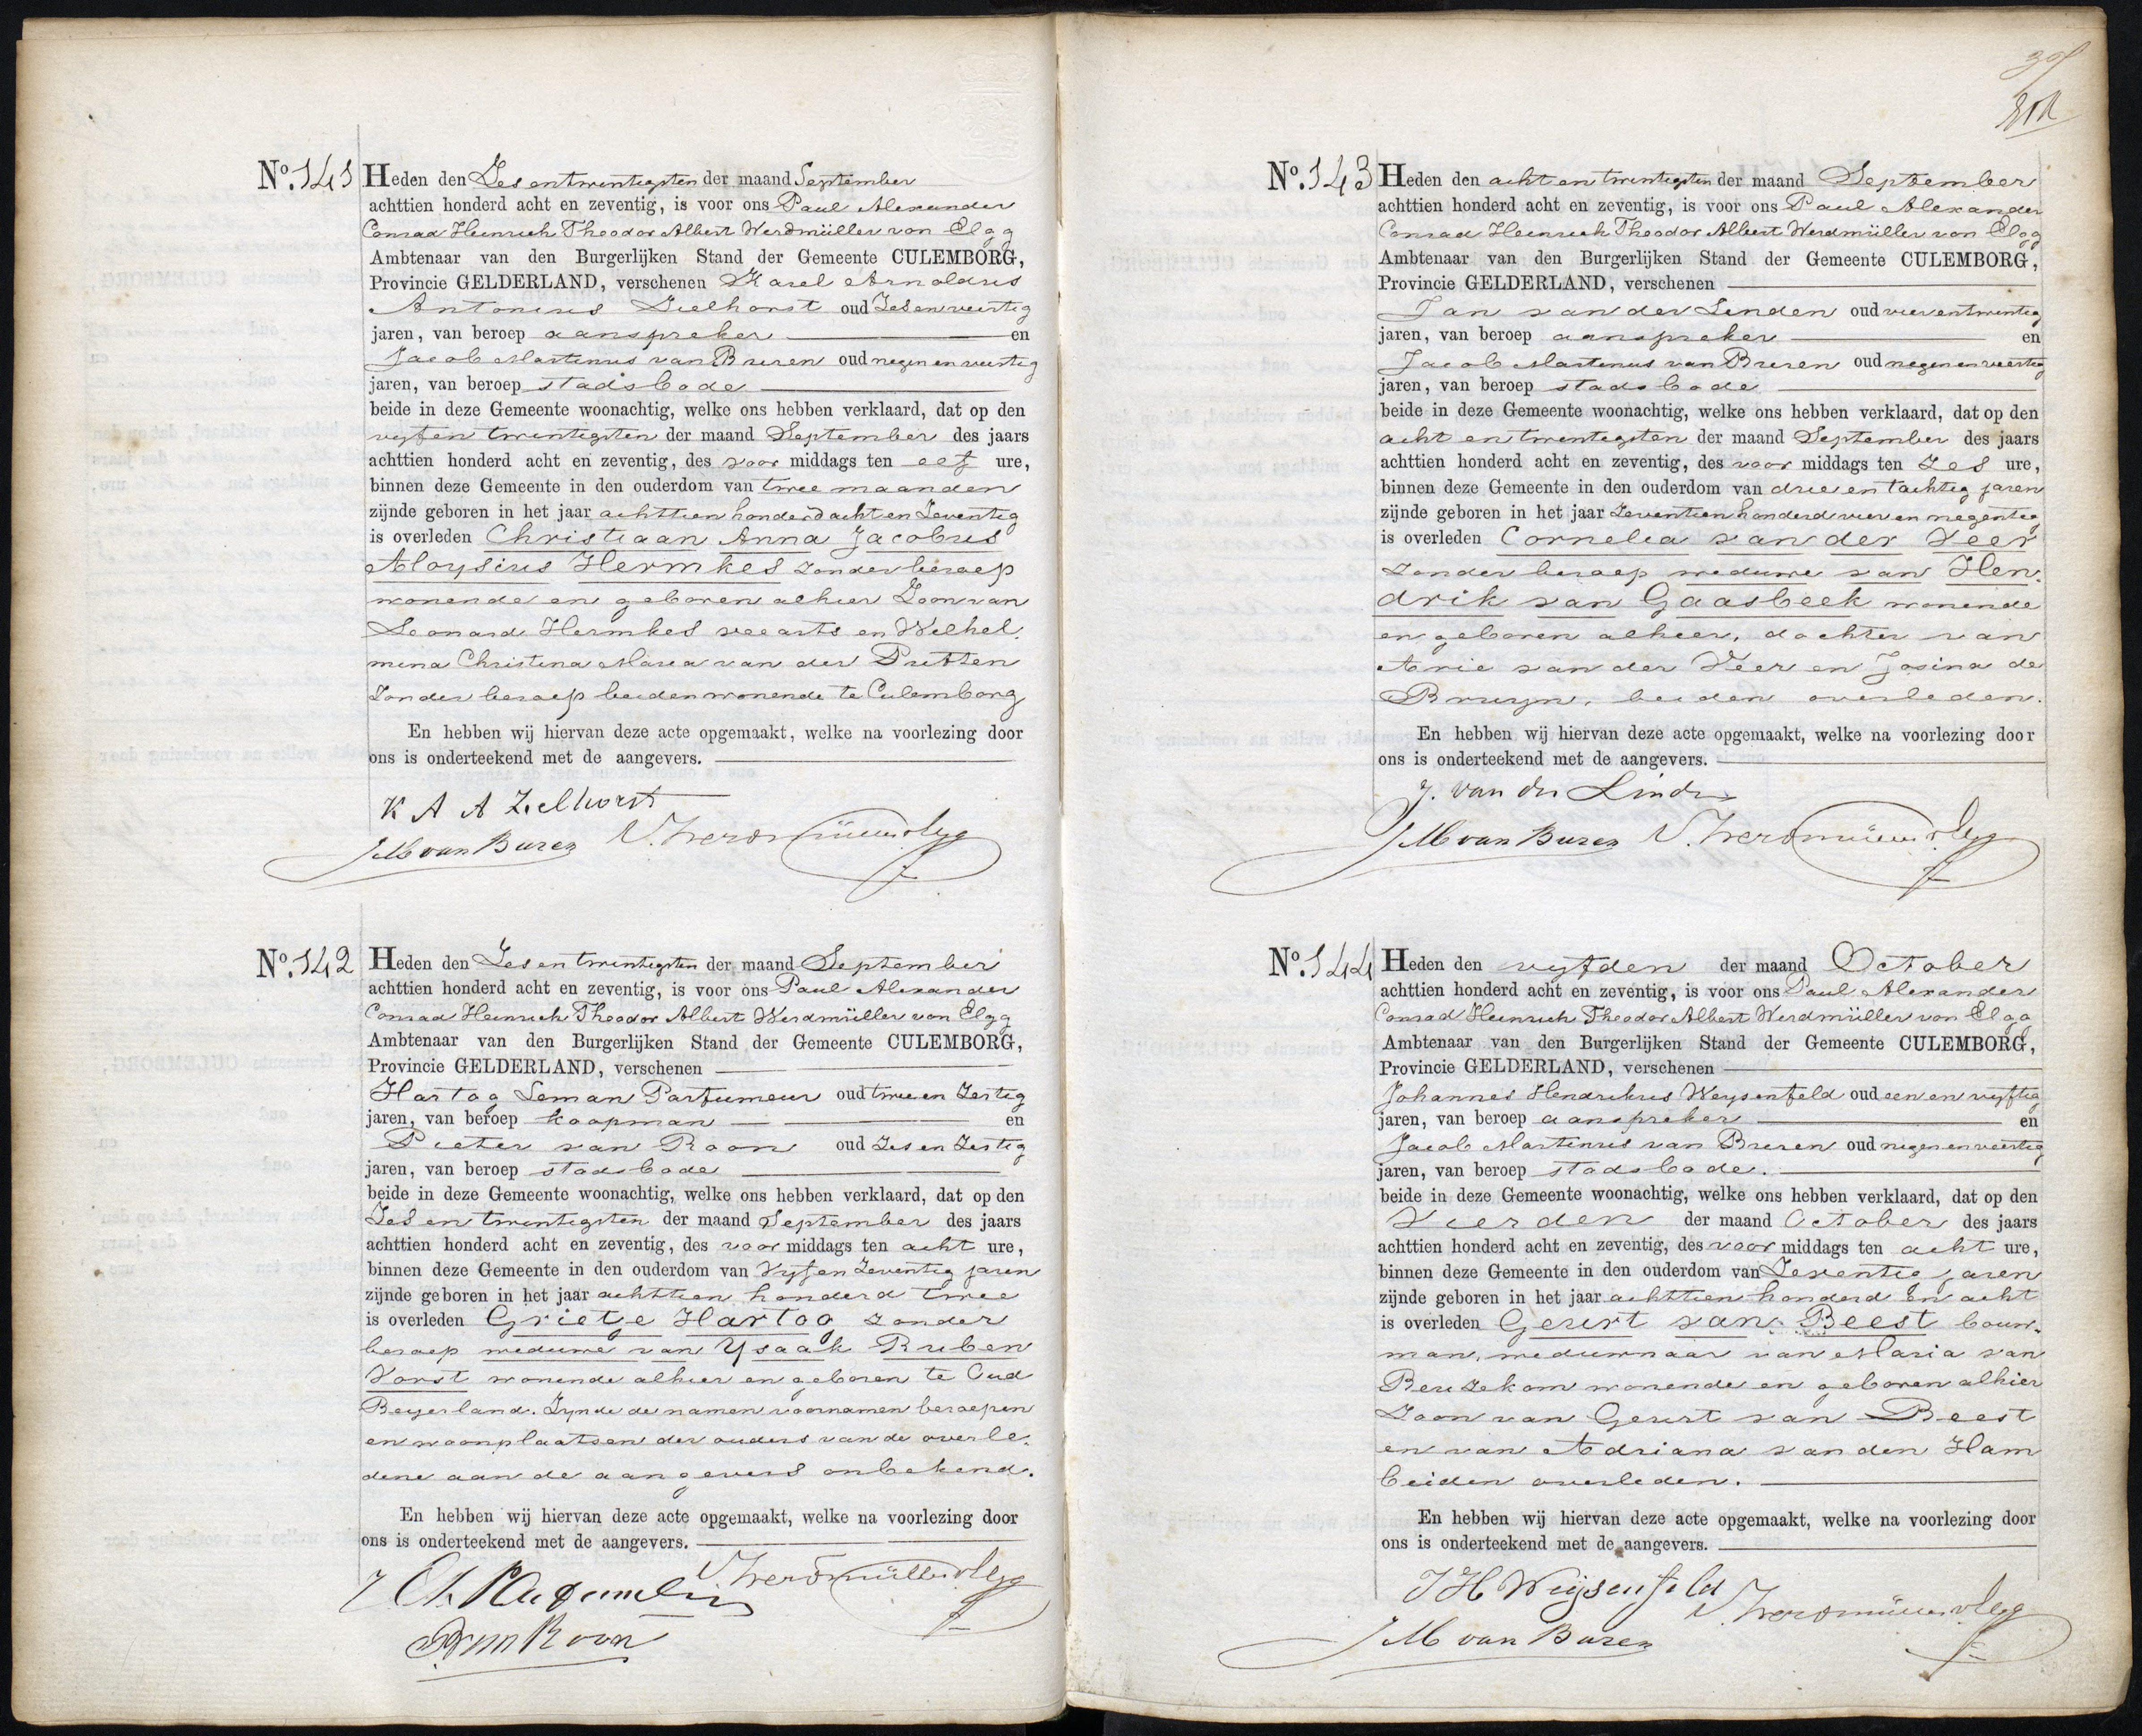 No. 141 Heden den Zesentwintigsten der maand September
achttien honderd acht en zeventig, is voor ons Paul Alexander
Conrad Heinrich Theodor Albert Werdmüller von Elgg
Ambtenaar van den Burgerlijken Stand der Gemeente CULEMBORG,
Provincie GELDERLAND, verschenen Karel Arnoldus
Antonius Zielhorst oud Zesenveertig
jaren, van beroep aanspreker en
Jacob Martinus van Buren oud negen en veertig
jaren, van beroep stadsbode
beide in deze Gemeente woonachtig, welke ons hebben verklaard, dat op den
vyfen twintigsten der maand September des jaars
achttien honderd acht en zeventig, des voor middags ten elf ure,
binnen deze Gemeente in den ouderdom van twee maanden
zijnde geboren in het jaar achttien honderd acht en Zeventig
is overleden Christiaan Anna Jacobus
Aloysius Hermkes zonder beroep
wonende en geboren alhier Zoon van
Leonard Hermkes veearts en Wilhel.
mina Christina Maria van der Putten
Zonder beroep beiden wonende te Culemborg
En hebben wij hiervan deze acte opgemaakt, welke na voorlezing door
ons is onderteekend met de aangevers.
K A A Zielhorst
JM van Buren Werdmüller v Elgg
No. 142 Heden den Zes en twintigsten der maand September
achttien honderd acht en zeventig, is voor ons Paul Alexander
Conrad Heinrich Theodor Albert Werdmüller von Elgg
Ambtenaar van den Burgerlijken Stand der Gemeente CULEMBORG,
Provincie GELDERLAND, verschenen
Hartog Leman Parfumeur oud twee en Zestig
jaren, van beroep koopman en
Pieter van Roon oud Zes en Zestig
jaren, van beroep stadsbode
beide in deze Gemeente woonachtig, welke ons hebben verklaard, dat op den
Zes en twintigsten der maand September des jaars
achttien honderd acht en zeventig, des voor middags ten acht ure,
binnen deze Gemeente in den ouderdom van Vyf en Zeventig jaren
zijnde geboren in het jaar achttien honderd twee
is overleden Grietje Hartog zonder
beroep weduwe van Ysaak Ruben
Vorst wonende alhier en geboren te Oud
Beyerland. Zynde de namen voornamen beroepen
en woonplaatsen der ouders van de overle.
dene aan de aangevers onbekend.
En hebben wij hiervan deze acte opgemaakt, welke na voorlezing door
ons is onderteekend met de aangevers.
Werdmüller v Elgg
P van Roon
No. 143 Heden den acht en twintigsten der maand September
achttien honderd acht en zeventig, is voor ons Paul Alexander
Conrad Heinrich Theodor Albert Werdmüller von Elgg
Ambtenaar van den Burgerlijken Stand der Gemeente CULEMBORG,
Provincie GELDERLAND, verschenen
Jan van der Linden oud vier en twintig
jaren, van beroep aanspreker en
Jacob Martinus van Buren oud negen en veertig
jaren, van beroep stadsbode
beide in deze Gemeente woonachtig, welke ons hebben verklaard, dat op den
acht en twintigsten der maand September des jaars
achttien honderd acht en zeventig, des voor middags ten zes ure,
binnen deze Gemeente in den ouderdom van drie en tachtig jaren
zijnde geboren in het jaar Zeventien honderd vier en negentig
is overleden Cornelia van der Veer
zonder beroep weduwe van Hen.
drik van Gaasbeek wonende
en geboren alhier, dochter van
Arie van der Veer en Josina de
Bruyn, beiden overleden.
En hebben wij hiervan deze acte opgemaakt, welke na voorlezing door
ons is onderteekend met de aangevers.
J. van der Linden
JM van Buren Werdmüller v Elgg
No. 144 Heden den vyfden der maand October
achttien honderd acht en zeventig, is voor ons Paul Alexander
Conrad Heinrich Theodor Albert Werdmüller von Elgg
Ambtenaar van den Burgerlijken Stand der Gemeente CULEMBORG,
Provincie GELDERLAND, verschenen
Johannes Hendrikus Weysenfeld oud een en vyftig
jaren, van beroep aanspreker en
Jacob Martinus van Buren oud negen en veertig
jaren, van beroep stadsbode.
beide in deze Gemeente woonachtig, welke ons hebben verklaard, dat op den
Vierden der maand October des jaars
achttien honderd acht en zeventig, des voor middags ten acht ure,
binnen deze Gemeente in den ouderdom van Zeventig jaren
zijnde geboren in het jaar achttien honderd en acht
is overleden Geurt van Beest bouw-
man, weduwnaar van Maria van
Beuzekom wonende en geboren alhier
Zoon van Geurt van Beest
en van Adriana van den Ham
beiden overleden.
En hebben wij hiervan deze acte opgemaakt, welke na voorlezing door
ons is onderteekend met de aangevers.
J H Weijsenfeld Werdmüller v Elgg
JM van Buren